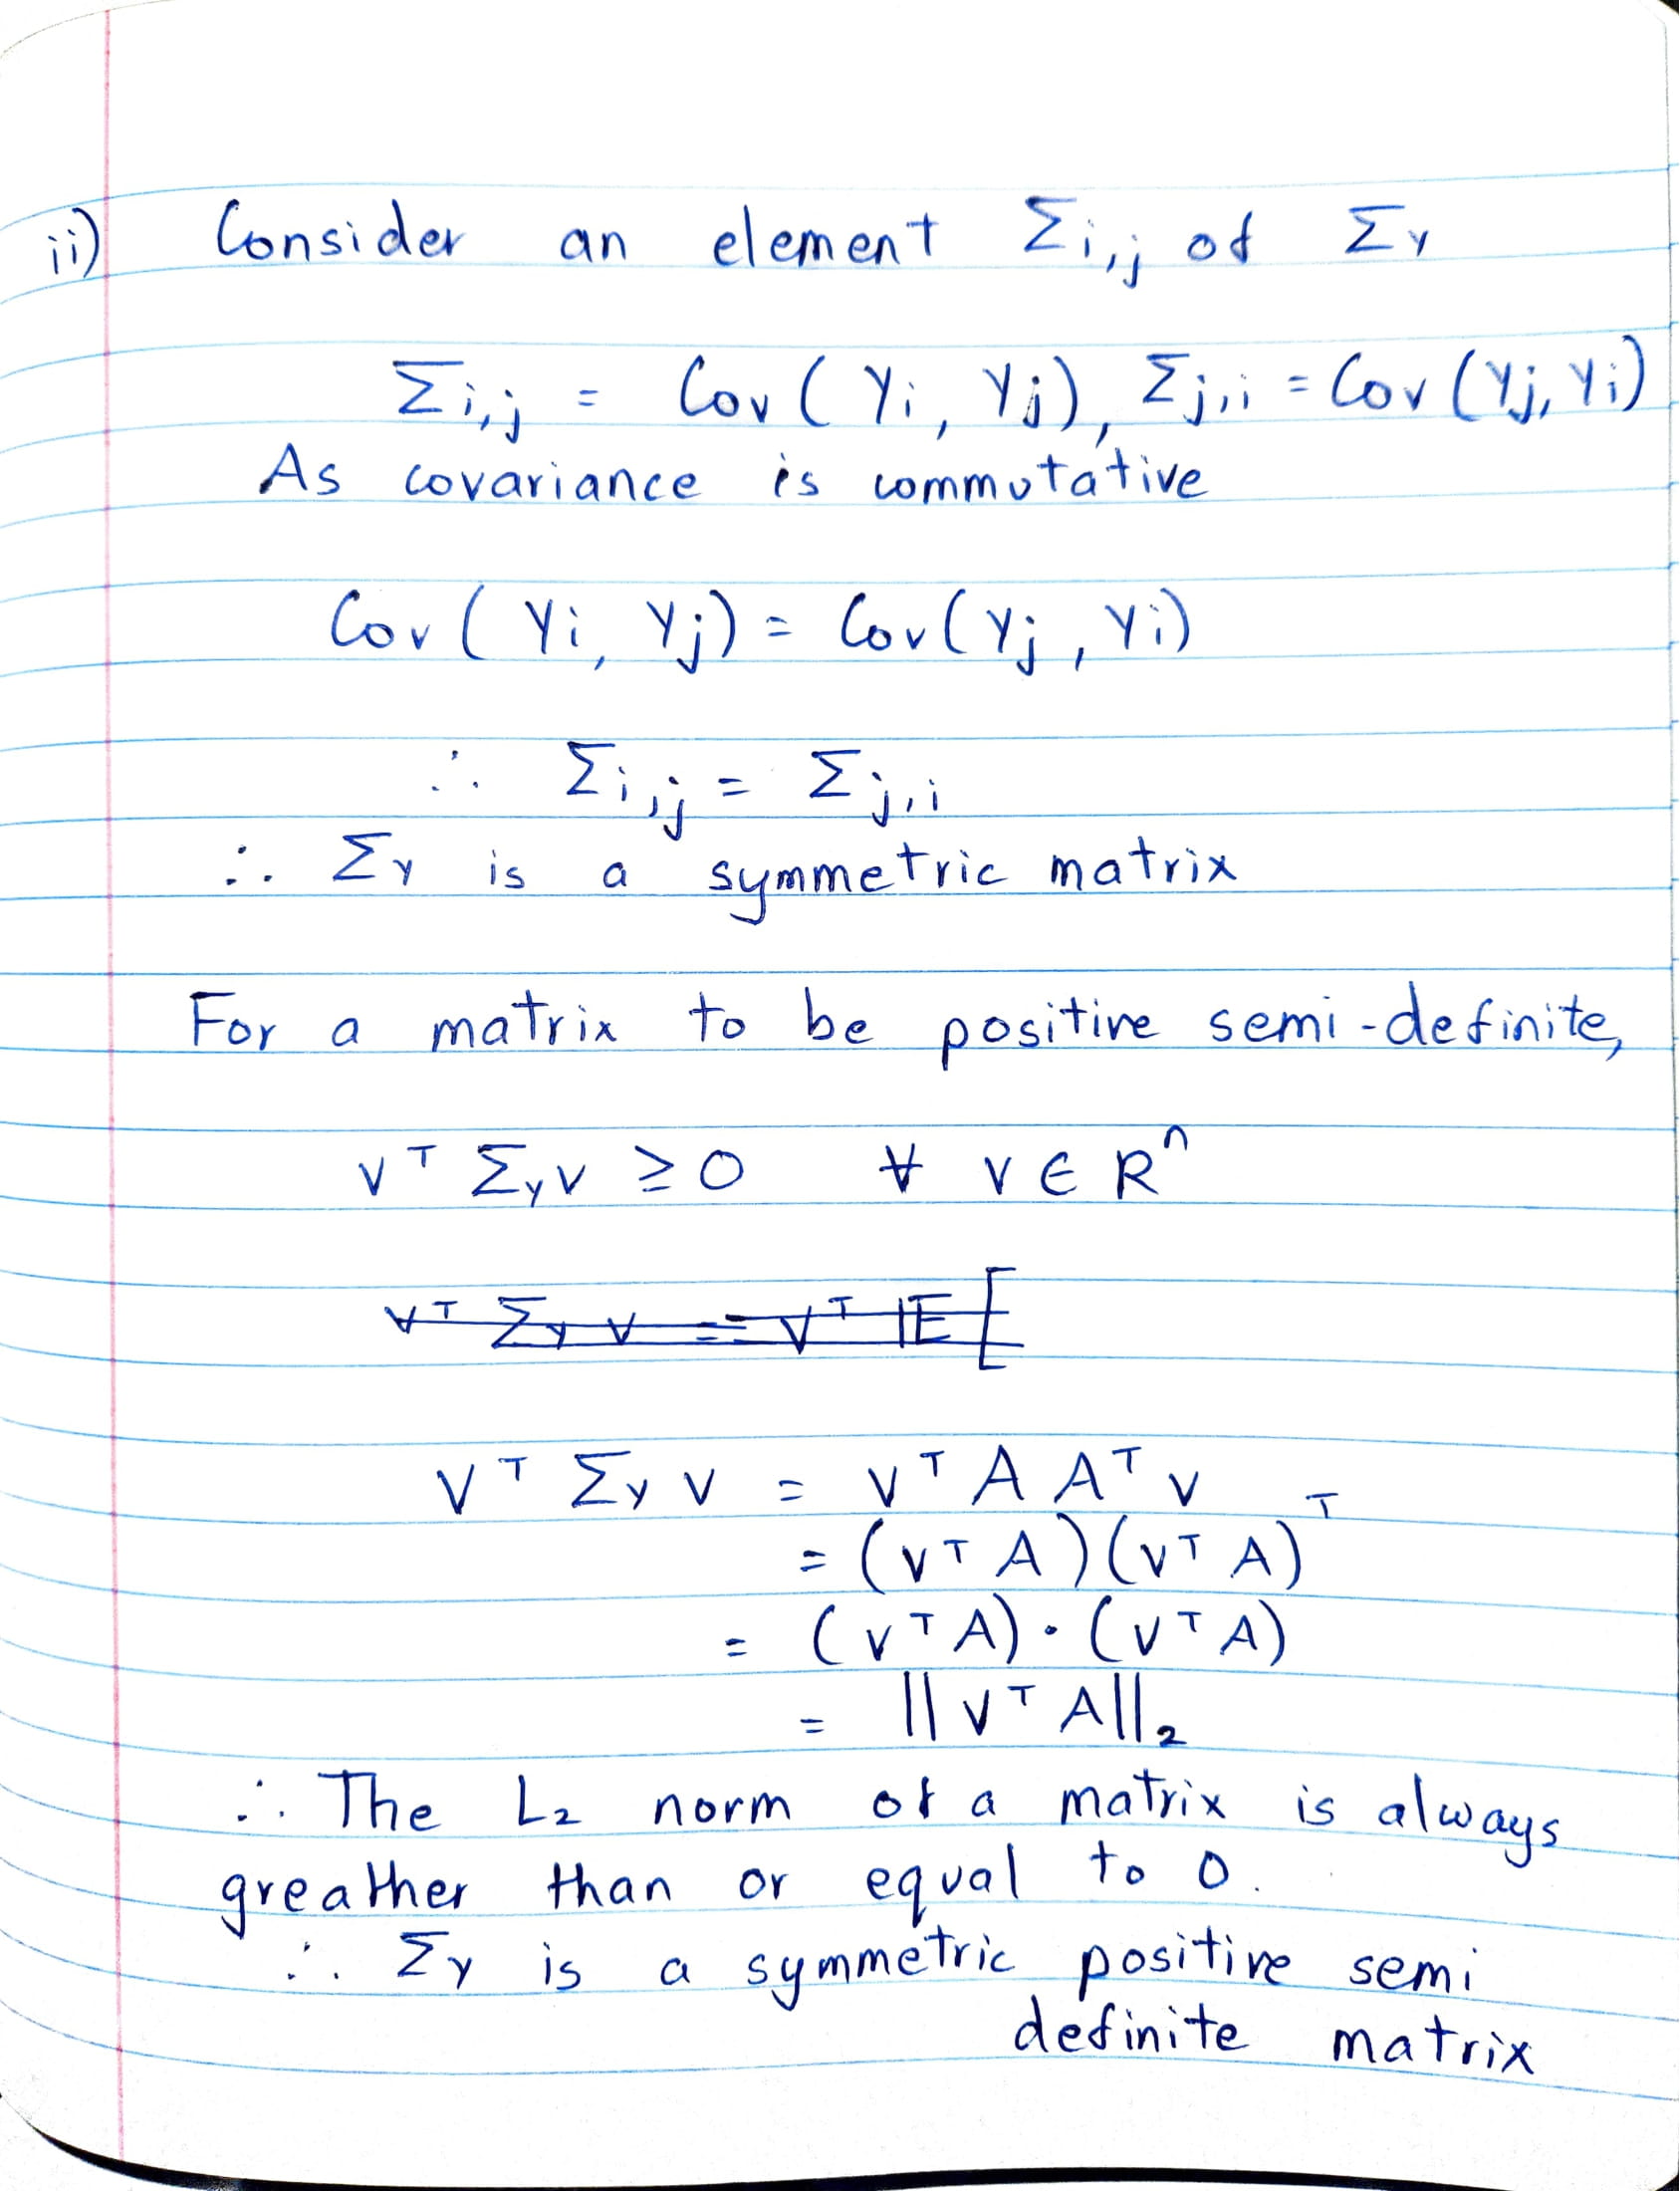 ii) Consider an element Σi,j of ΣY
Σi,j = Cov ( Yi, Yj), Σj,i = Cov (Yj, Yi)
As covariance is commutative
Cov ( Yi, Yj) = Cov(Yj, Yi)
∴ Σi,j = Σj,i
∴ ΣY is a symmetric matrix
For a matrix to be positive semi-definite,
vᵀ ΣY v ≥ 0 ∀ v ∈ Rⁿ
vᵀ ΣY v = vᵀ 𝔼 [
vᵀ ΣY v = vᵀ A Aᵀ v
= (vᵀ A)(vᵀ A)ᵀ
= (vᵀ A) • (vᵀ A)
= ||vᵀ A||₂
∴ The L₂ norm of a matrix is always
greather than or equal to 0.
∴ ΣY is a symmetric positive semi
definite matrix